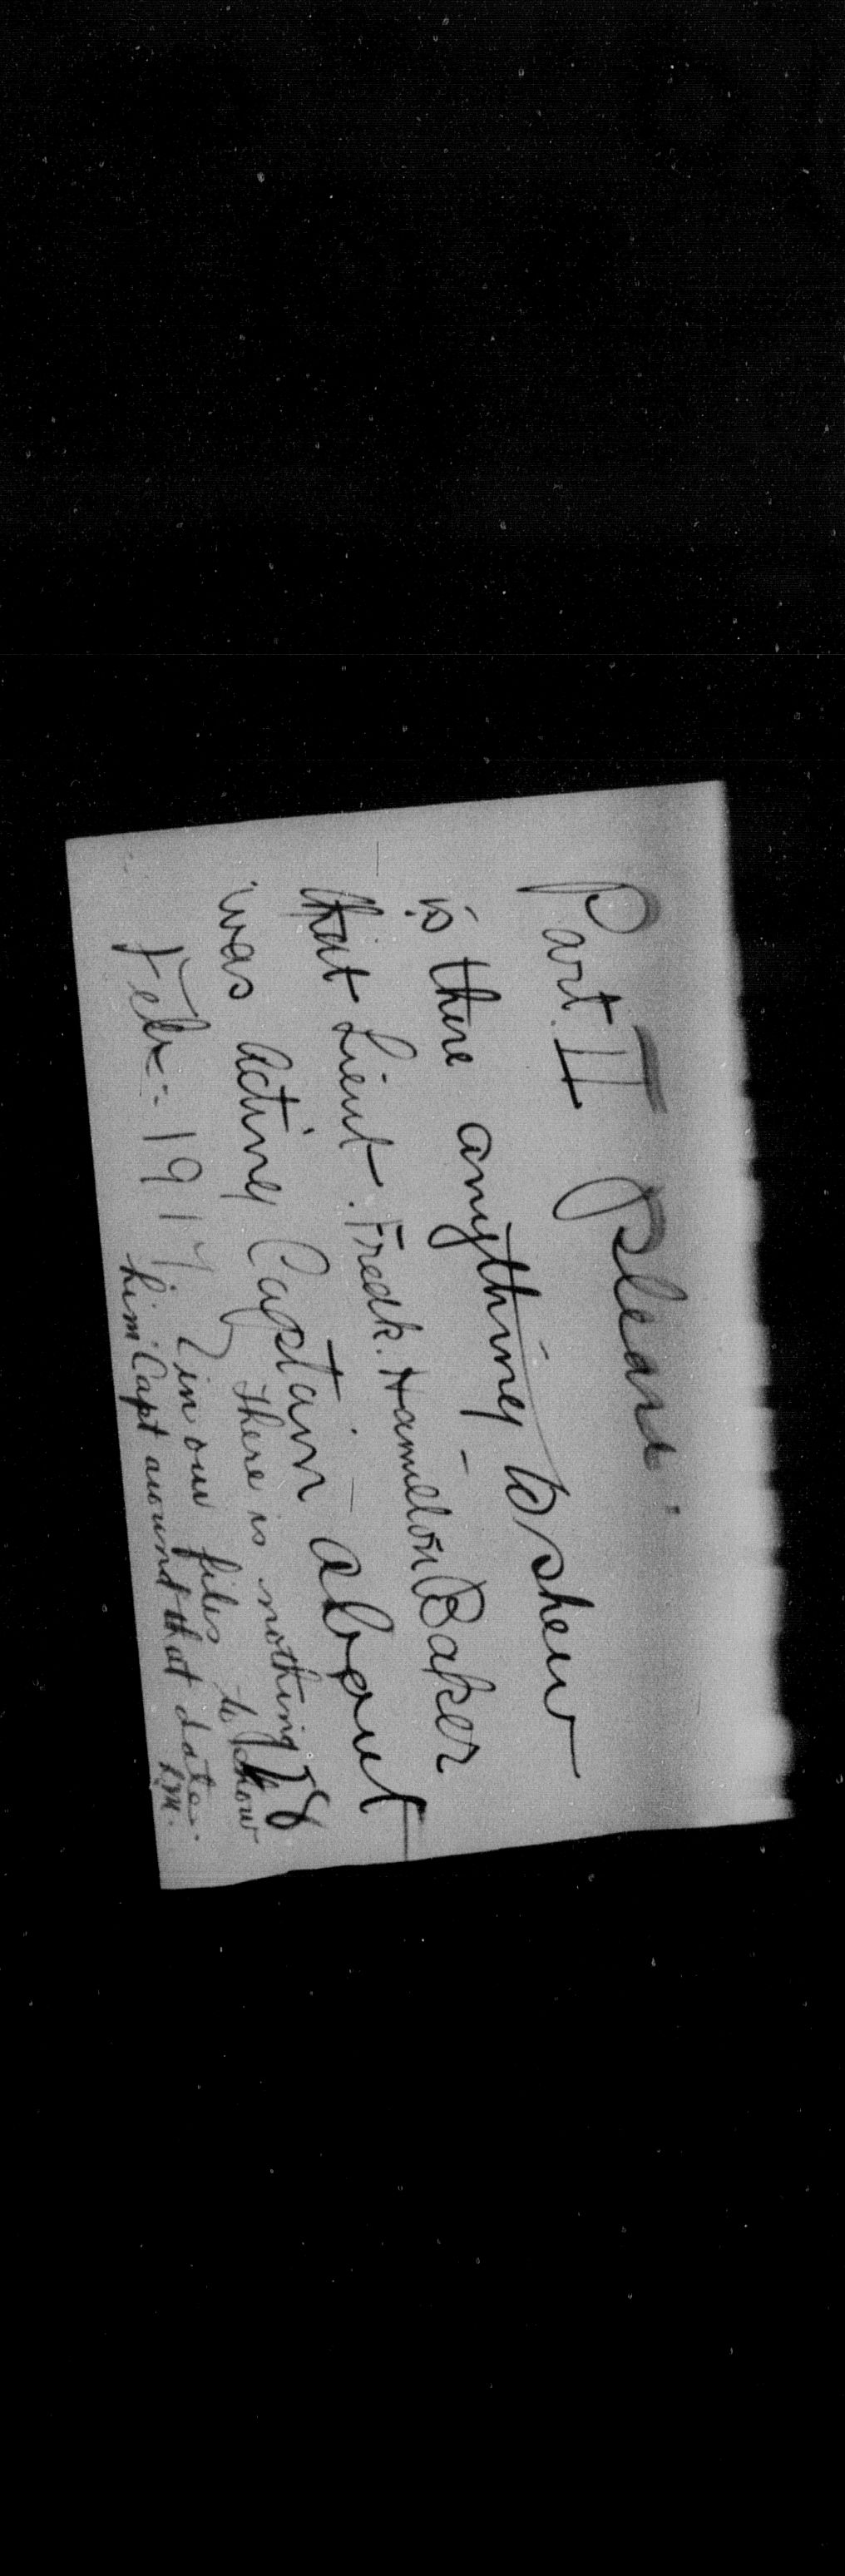 Part II Please.
is there anything to shew
that Lieut. Fredk. Hamilton Baker
was Acting Captain – about
Feb:- 1917
There is nothing
in our files to show
him Capt around that date.